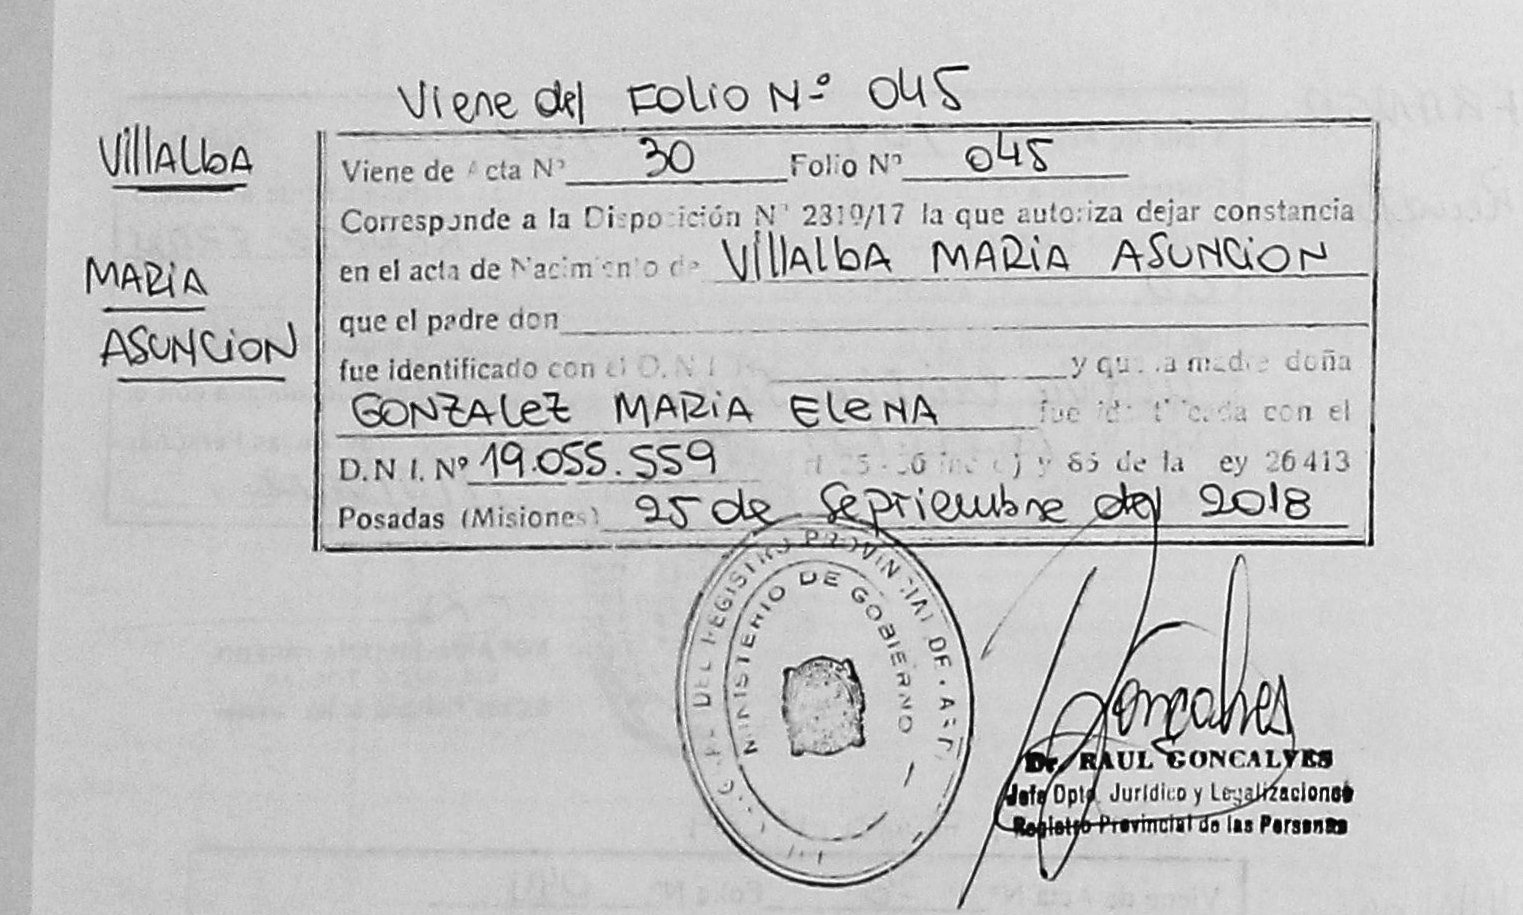 Viene del FOLIO Nº 045
VillAlbA
MARiA
ASUNCiON
Viene de Acta Nº 30 Folio Nº 045
Corresponde a la Disposición Nº 2319/17 la que autoriza dejar constancia
en el acta de Nacimiento de VillAlbA MARiA ASUNCiON
que el padre don
fue identificado con el D.N.I. Nº y que la madre doña
GONZALEZ MARiA ELENA fue identificada con el
D.N.I. Nº 19.055.559 y 65 de la ley 26413
Posadas (Misiones) 25 de Septiembre del 2018
DEL REGISTRO PROVINCIAL DE
MINISTERIO DE GOBIERNO
Goncalves
Dr. RAUL GONCALVES
Jefe Dpto. Jurídico y Legalizaciones
Registro Provincial de las Personas
Viene de Acta Nº Folio Nº